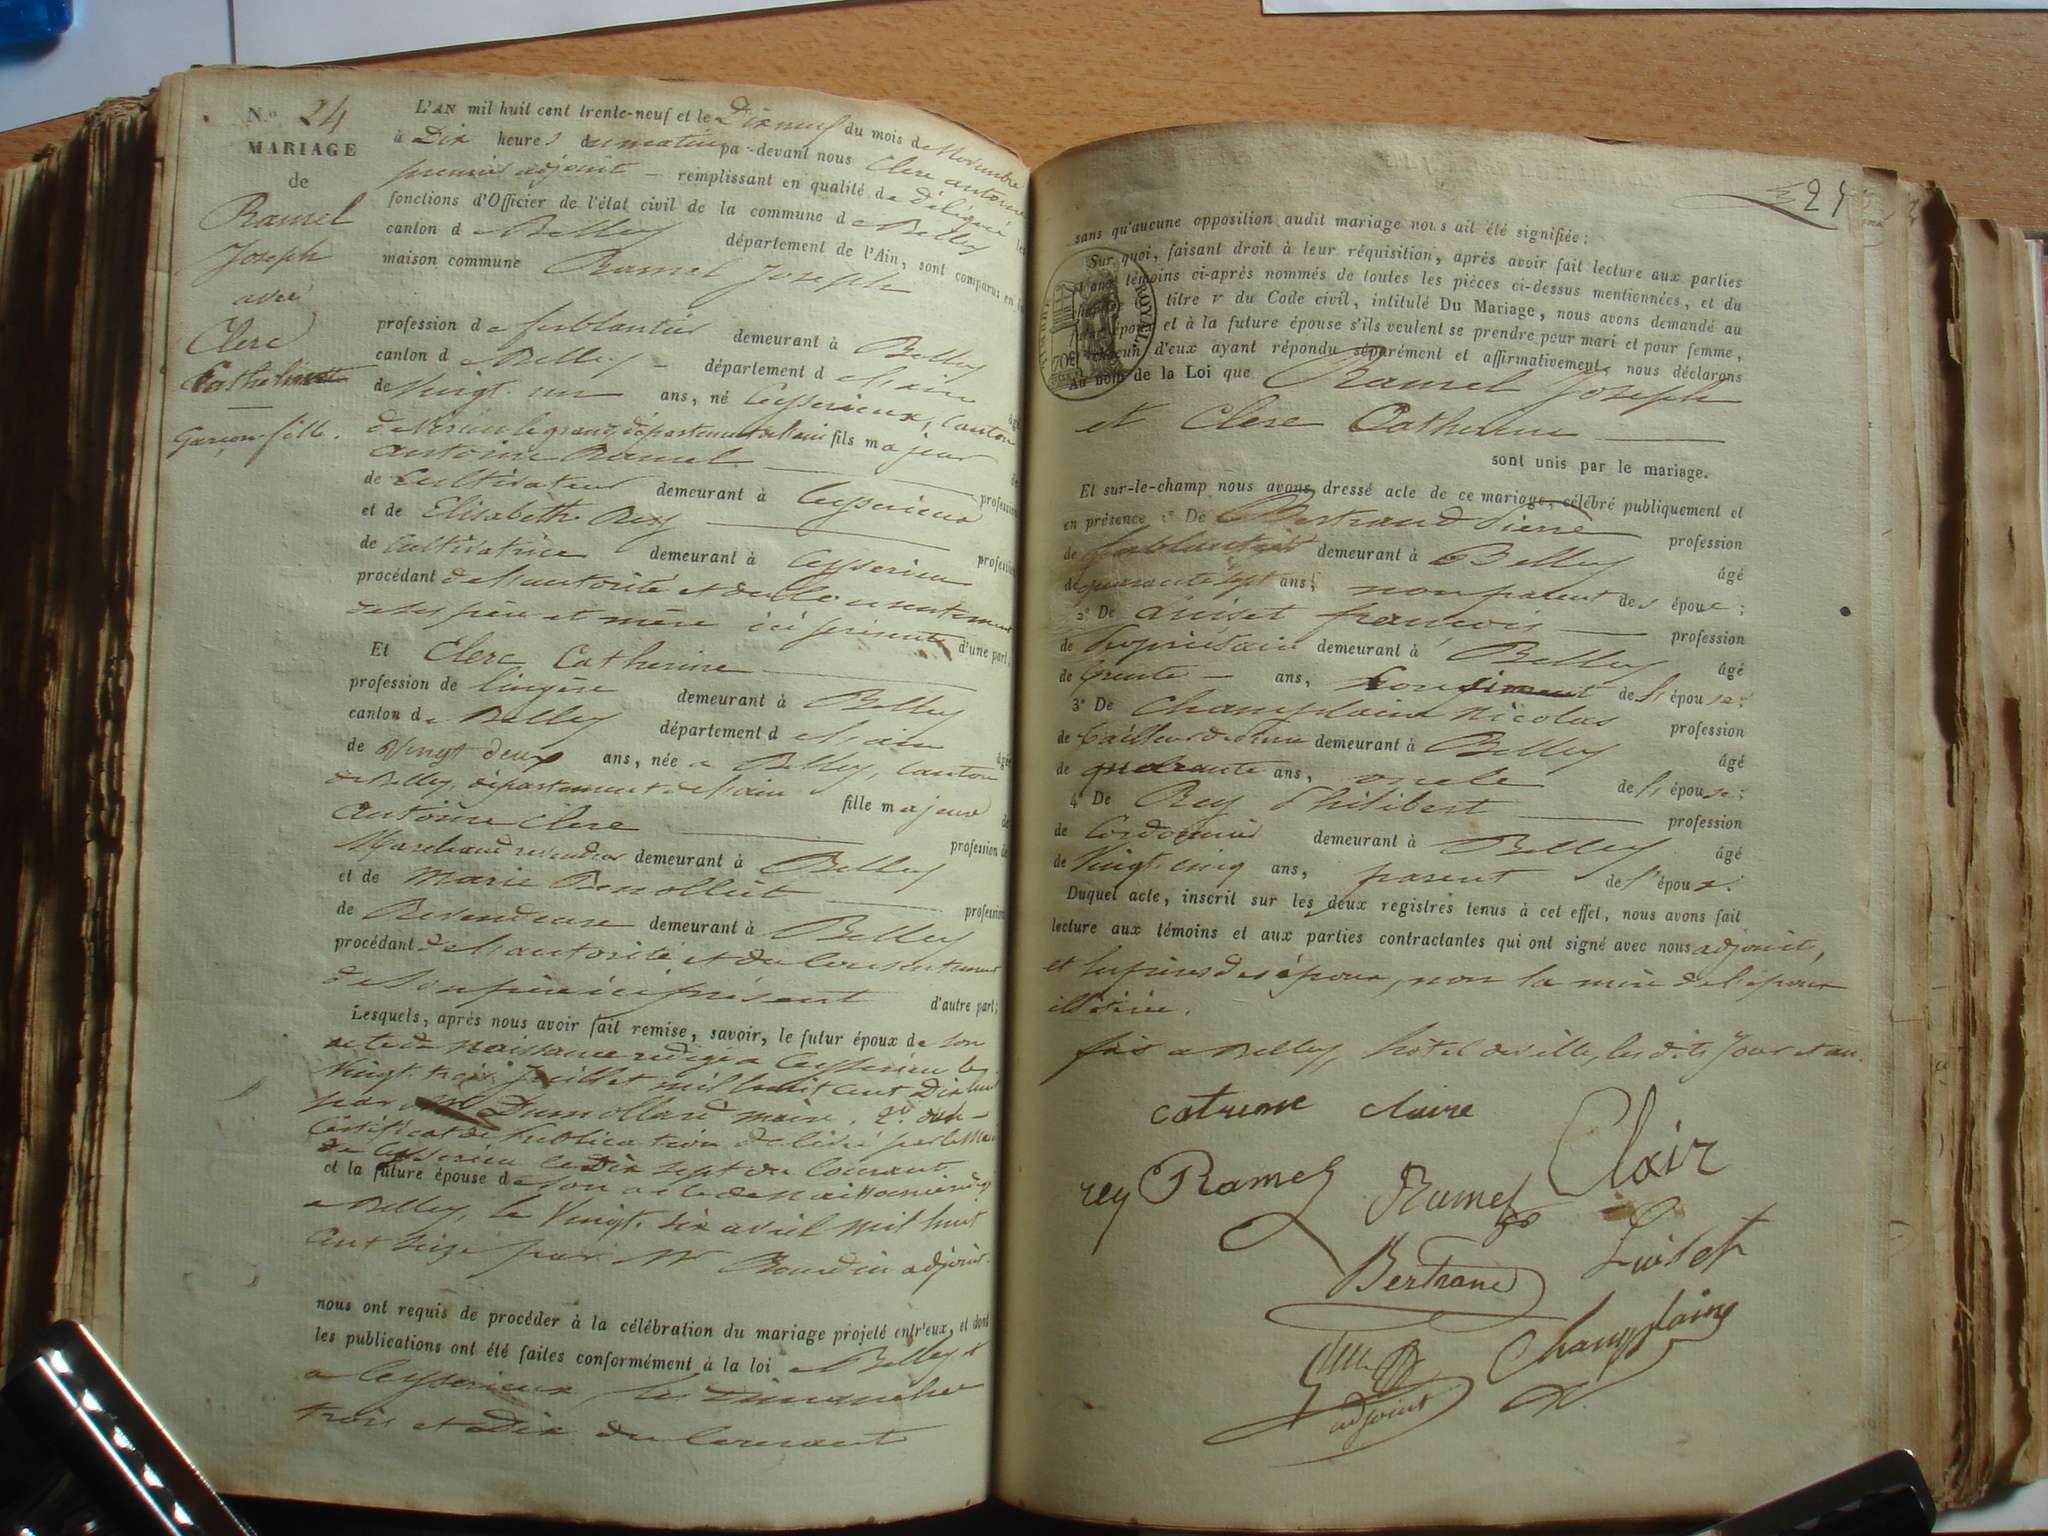 N.o 24
MARIAGE
de
Ramel
Joseph
avec
Clerc
Catherine
Garçon-fille.
L'AN mil huit cent trente-neuf et le Dix neuf du mois de Novembre
à Dix heures du matin pa-devant nous Clerc antoine
premier adjoint - remplissant en qualité de Délégué les
fonctions d'Officier de l'état civil de la commune de Belley
canton de Belley département de l'Ain, sont comparus en la
maison commune Ramel Joseph
profession de ferblantier demeurant à Belley
canton de Belley - département de l'ain âgé
de Vingt-un ans, né à Ceyserieux, Canton
de Virieu le grand, département de l'ain fils majeur de
antoine Ramel profession
de Cultivateur demeurant à Ceyserieux
et de Elisabeth Rey profession
de Cultivatrice demeurant à Ceyserieu
procédant de l'autorité et du Consentement
de ses père et mère ici présents d'une part.
Et Clerc Catherine
profession de lingère demeurant à Belley
canton de Belley département de l'ain âgée
de Vingt deux ans, née a Belley, Canton
de Belley, département de l'ain fille majeure de
antoine Clerc profession de
Marchand revendeur demeurant à Belley
et de Marie Benolliet profession
de Revendeuse demeurant à Belley
procédant de l'autorité et du Consentement
de Son père ici présent d'autre part;
Lesquels, après nous avoir fait remise, savoir, le futur époux de son
acte de naissance rédigé a Ceyserieu le
Vingt-trois Juillet mil huit cent Dix huit
par Mr Dumollard maire. 2o. du
Certificat de publication délivré par le Maire
de Ceyserieu le Dix sept du Courant
et la future épouse de son acte de naissance rédigé
a Belley, le Vingt-six avril mil huit
cent seize par Mr Bourdin adjoint.
nous ont requis de procéder à la célébration du mariage projeté entr'eux, et dont
les publications ont été faites conformément à la loi a Belley &
a Ceyserieux, les Dimanches
trois et Dix du Courant
24
sans qu'aucune opposition audit mariage nous ait été signifiée;
Sur quoi, faisant droit à leur réquisition, après avoir fait lecture aux parties
et aux témoins ci-après nommés de toutes les pièces ci-dessus mentionnées, et du
chapitre titre v du Code civil, intitulé Du Mariage, nous avons demandé au
futur époux et à la future épouse s'ils veulent se prendre pour mari et pour femme,
chacun d'eux ayant répondu séparément et affirmativement, nous déclarons
Au nom de la Loi que Ramel Joseph
et Clerc Catherine
sont unis par le mariage.
Et sur-le-champ nous avons dressé acte de ce mariage, célébré publiquement et
en présence 1o De Bertrand Pierre profession
de ferblantier demeurant à Belley âgé
de quarante sept ans, non parent des époux;
2o De Luiset francois profession
de Propriétaire demeurant à Belley âgé
de trente - ans, de l'épouse;
3o De Champlaine Nicolas profession
de tailleur de pierre demeurant à Belley âgé
de quarante ans, oncle de l'épouse;
4o De Rey Philibert profession
de Cordonnier demeurant à Belley âgé
de Vingt-cinq ans, parent de l'époux.
Duquel acte, inscrit sur les deux registres tenus à cet effet, nous avons fait
lecture aux témoins et aux parties contractantes qui ont signé avec nous adjoint,
et les pères des époux, non la mère de l'époux
illitérée.
fait a Belley, hôtel de ville, les dits Jour et an.
catrinne claire
rey Ramel Ramel Clair
Bertrand Luiset
Champlaine
adjoint
TIMBRE ROYAL